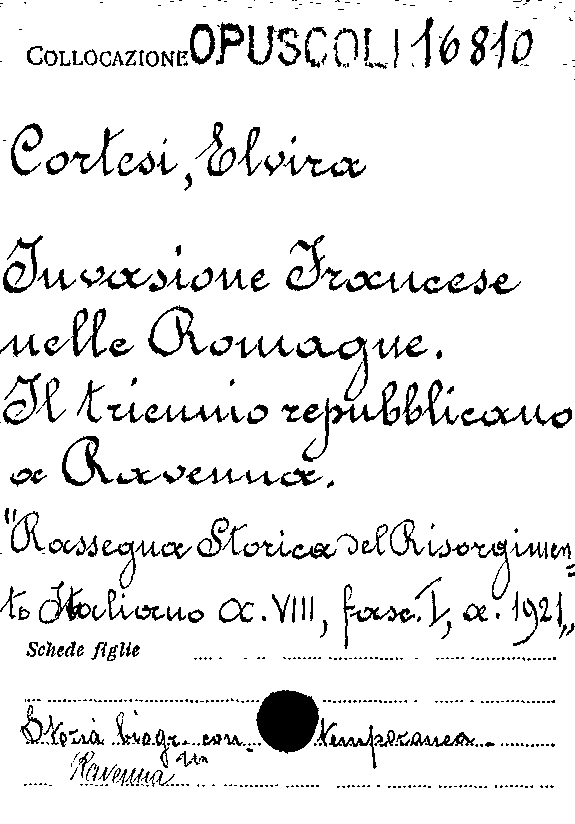 COLLOCAZIONE OPUSCOLI 16810
Cortesi, Elvira
Invasione Francese
nelle Romagne.
Il triennio repubblicano
a Ravenna.
"Rassegna Storica del Risorgimen=
to Italiano a. VIII, fasc. I, a. 1921„
Schede figlie
Storia biogr. con- temporanea.
Ravenna